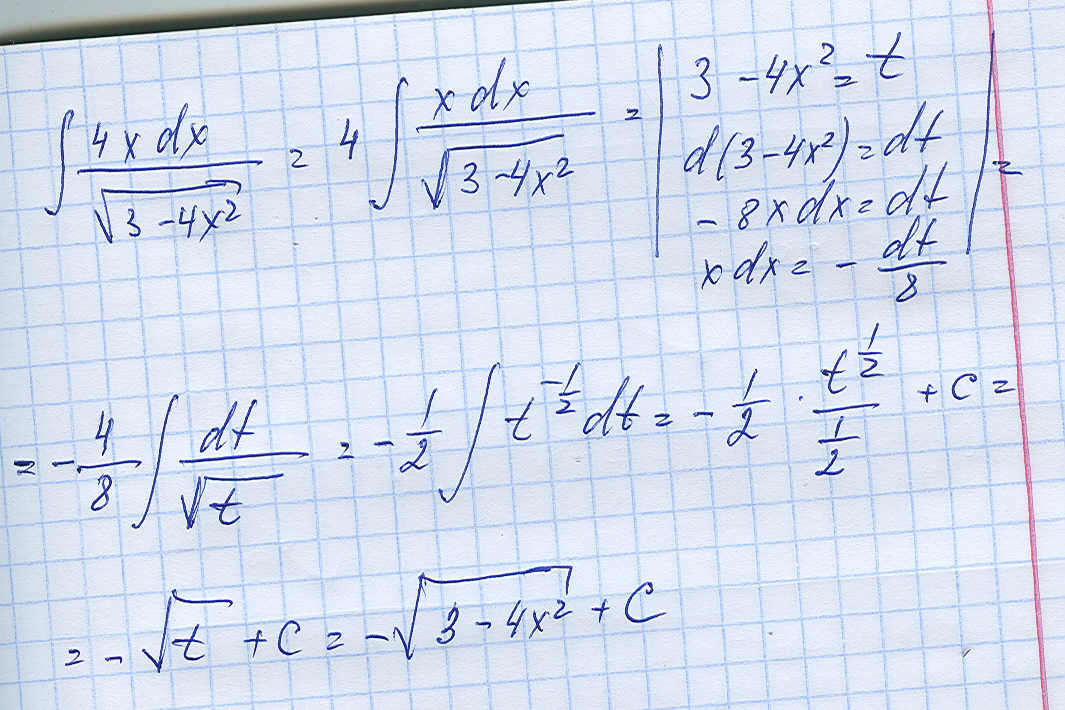 ∫ 4x dx / √(3-4x²) = 4 ∫ x dx / √(3-4x²) = | 3-4x² = t
d(3-4x²) = dt
-8x dx = dt
x dx = - dt/8 | =
= - 4/8 ∫ dt/√t = - 1/2 ∫ t^(-1/2) dt = - 1/2 · t^(1/2) / (1/2) + C =
= - √t + C = - √(3-4x²) + C